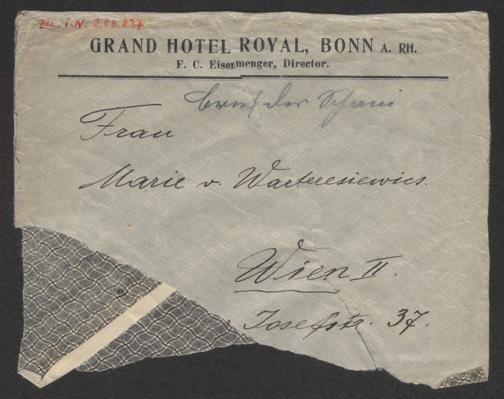 Zu I.N. 206.837
GRAND HOTEL ROYAL, BONN A. RH.
F. C. Eisermenger, Director.
Brief der
Frau
Marie v. Warteresiewics.
Wien II.
Josefstr. 37.